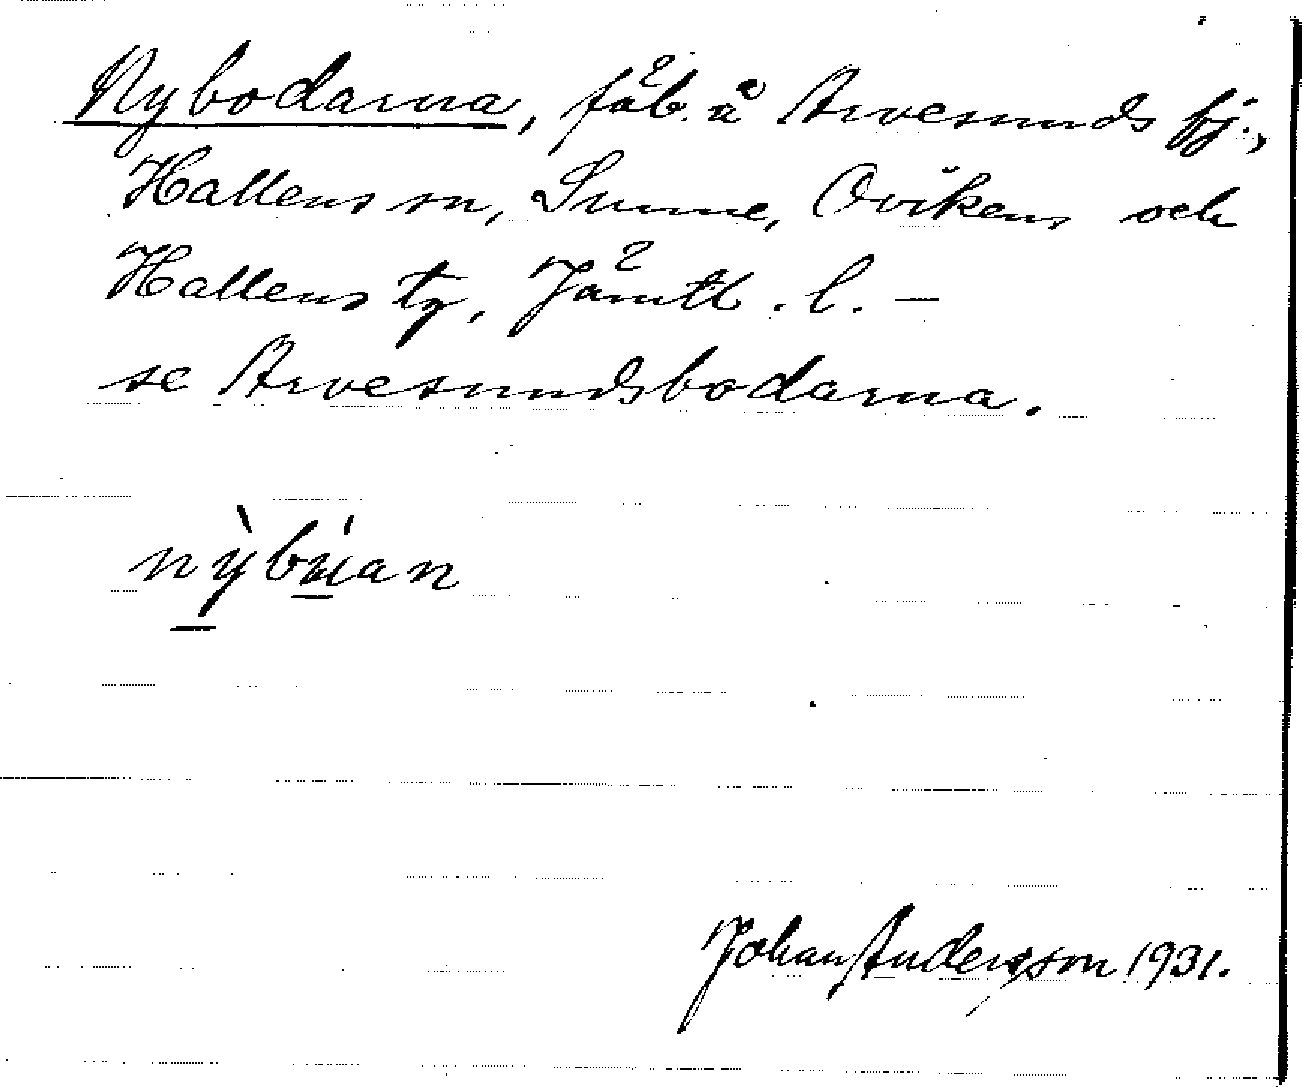 Nybodarna, fäb. å Arvesunds fj.,
Hallens sn, Sunne, Ovikens och
Hallens tg, Jämtl. l. —
se Arvesundsbodarna.
nỳbúan
Johan Andersson 1931.